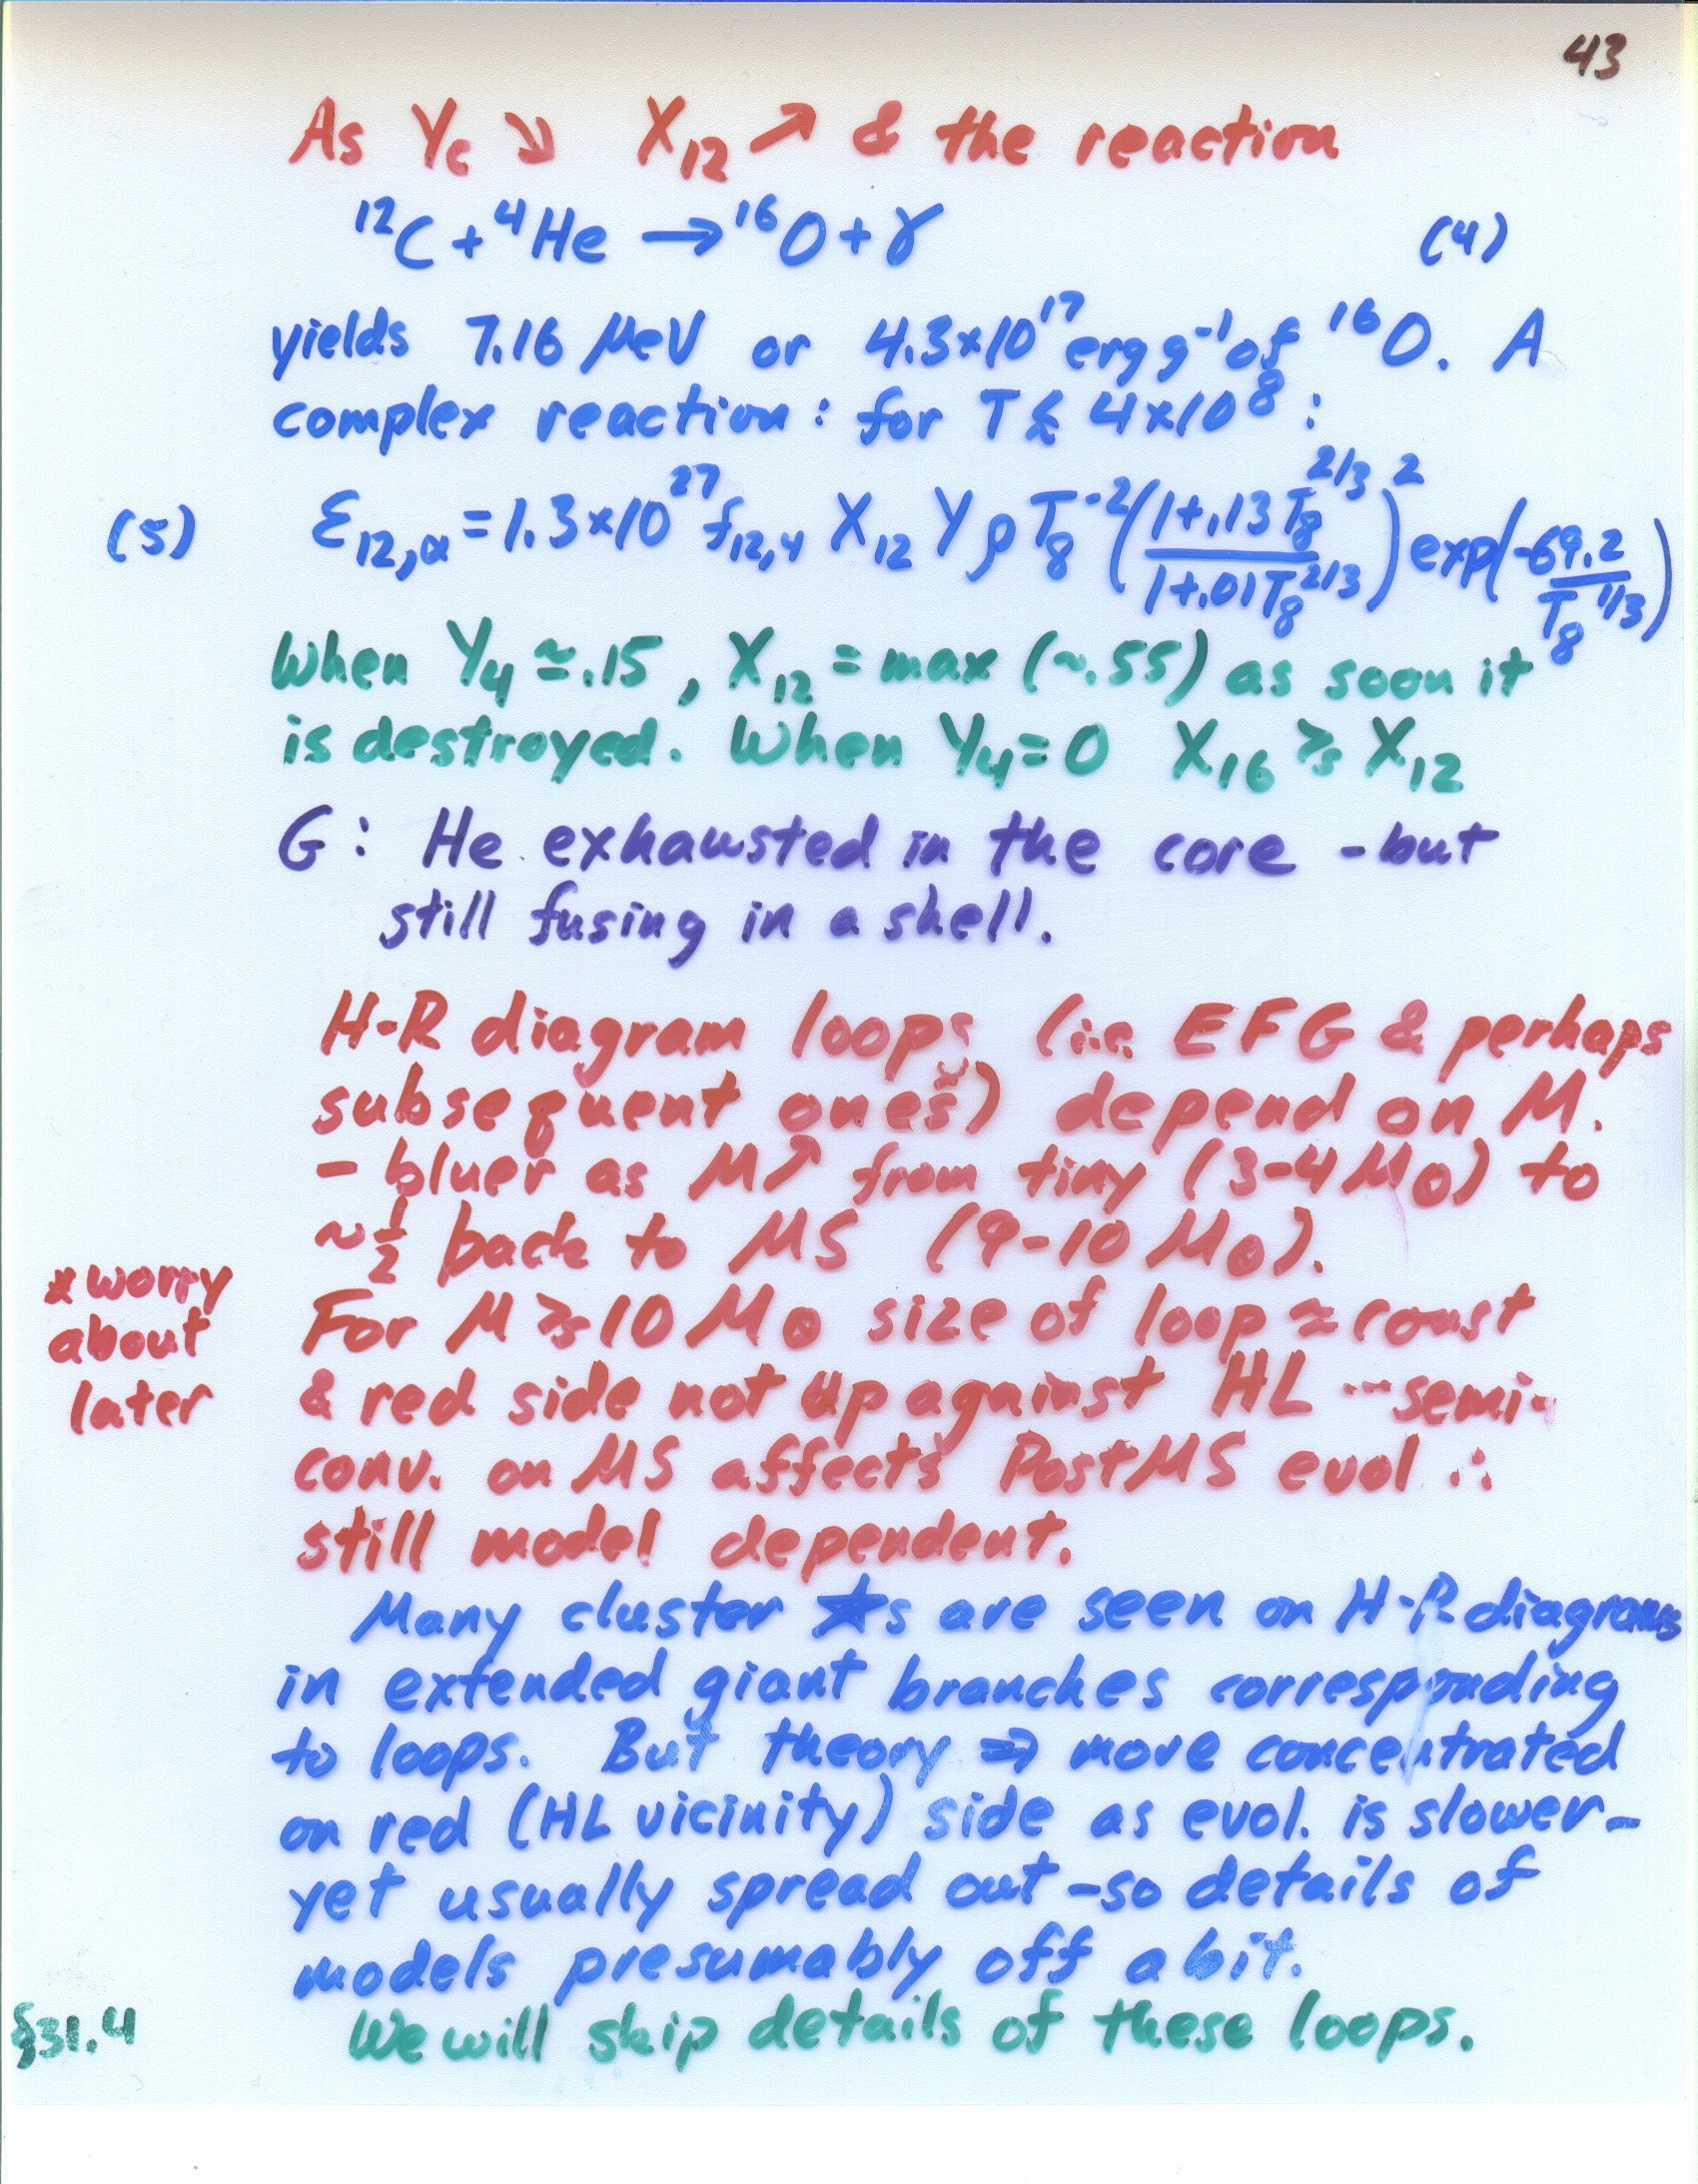 43
As Yc ↘ X₁₂ ↗ & the reaction
¹²C + ⁴He → ¹⁶O + γ (4)
yields 7.16 MeV or 4.3×10¹⁷ erg g⁻¹ of ¹⁶O. A
complex reaction: for T ≲ 4×10⁸:
(5) ε₁₂,α = 1.3×10²⁷ f₁₂,₄ X₁₂ Y ρ T₈⁻² ((1+.13 T₈^2/3)/(1+.01 T₈^2/3))² exp(-69.2/T₈^1/3)
When Y₄ ≃ .15, X₁₂ = max (~.55) as soon it
is destroyed. When Y₄=0 X₁₆ ≳ X₁₂
G: He exhausted in the core - but
still fusing in a shell.
H-R diagram loops (i.e. EFG & perhaps
subsequent ones*) depend on M.
- bluer as M↗ from tiny (3-4 M⊙) to
~½ back to MS (9-10 M⊙).
* worry
about
later
For M ≳ 10 M⊙ size of loop ≈ const
& red side not up against HL --- semi-
conv. on MS affects Post MS evol ∴
still model dependent.
Many cluster ★s are seen on H-R diagrams
in extended giant branches corresponding
to loops. But theory ⇒ more concentrated
on red (HL vicinity) side as evol. is slower -
yet usually spread out - so details of
models presumably off a bit.
§31.4 We will skip details of these loops.